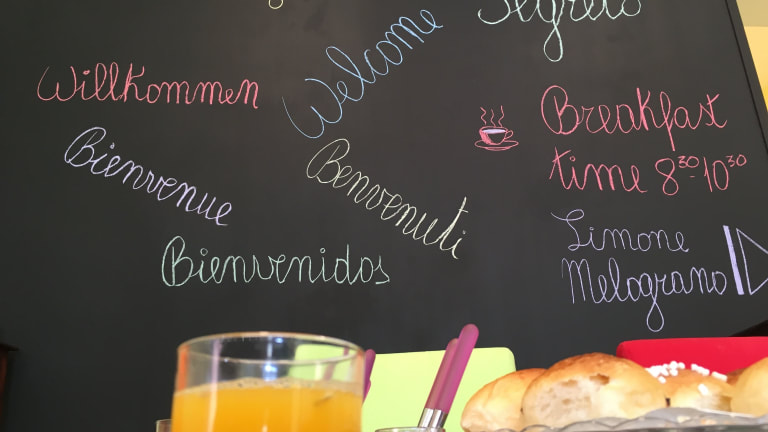 Segreto
Willkommen
Welcome
Bienvenue
Benvenuti
Bienvenidos
Breakfast
time 8³⁰-10³⁰
Limone
Melograno